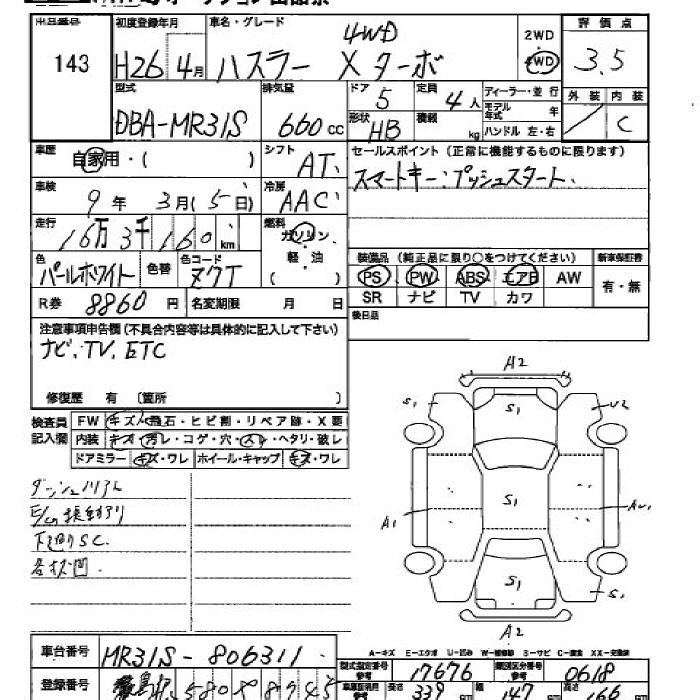 出品番号 初度登録年月 車名・グレード 評価点
143 H26 4月 ハスラー Xターボ 4WD 2WD 4WD 3.5
型式 排気量 ドア 5 定員 4人 ディーラー・並行 外装 内装
モデル年式 年
DBA-MR31S 660cc 形状 HB 積載 kg ハンドル 左・右 C
車歴 自家用・( ) シフト AT セールスポイント (正常に機能するものに限ります)
スマートキー プッシュスタート
車検 9年 3月(5日) 冷房 AAC
走行 16万3千160km 燃料 ガソリン・軽・油
装備品 (純正品に限り○をつけてください) 新車保証書
色 パールホワイト 色替 色コード Z7T PS PW ABS エアB AW 有・無
SR ナビ TV カワ
R券 8860円 名変期限 月 日
後日品
注意事項申告欄 (不具合内容等は具体的に記入して下さい)
ナビ、TV、ETC
修復歴 有 〔箇所 〕
検査員記入欄 FW キズ・飛石・ヒビ割・リペア跡・X要
内装 キズ・汚レ・コゲ・穴・スレ・ヘタリ・破レ
ドアミラー キズ・ワレ ホイール・キャップ キズ・ワレ
A2
S1 S1 U2
S1
A1 AU1
S1 S1
A2
下廻りSC
A-キズ E-エクボ U-凹み W-補修跡 S-サビ C-腐食 XX-交換済
車台番号 MR31S-806311
型式指定番号 参考 17676 類別区分番号 参考 0618
登録番号 580 8945
長さ 339 cm 147 cm 166 cm